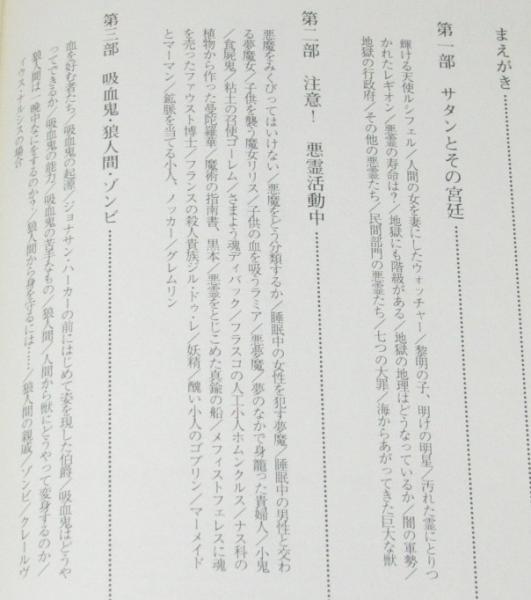 まえがき
第一部 サタンとその宮廷
輝ける天使ルシフェル／人間の女を妻にしたウォッチャー／黎明の子、明けの明星／汚れた霊にとりつ
かれたレギオン／悪霊の寿命は？／地獄にも階級がある／地獄の地理はどうなっているか／闇の軍勢／
地獄の行政府／その他の悪霊たち／民間部門の悪霊たち／七つの大罪／海からあがってきた巨大な獣
第二部 注意！ 悪霊活動中
悪魔をみくびってはいけない／悪魔をどう分類するか／睡眠中の女性を犯す夢魔／睡眠中の男性と交わ
る夢魔女／子供を襲う魔女リリス／子供の血を吸うラミア／悪夢魔／夢のなかで身籠った貴婦人／小鬼
／食屍鬼／粘土の召使ゴーレム／さまよう魂ディバック／フラスコの人工小人ホムンクルス／ナス科の
植物から作った曼陀羅華／魔術の指南書、黒本／悪霊をとじこめた真鍮の船／メフィストフェレスに魂
を売ったファウスト博士／フランスの殺人貴族ジル・ドゥ・レ／妖精／醜い小人のゴブリン／マーメイド
とマーマン／鉱脈を当てる小人、ノッカー／グレムリン
第三部 吸血鬼・狼人間・ゾンビ
血を好む者たち／吸血鬼の起源／ジョナサン・ハーカーの前にはじめて姿を現した伯爵／吸血鬼はどうや
ってできるか／吸血鬼の能力／吸血鬼の苦手なもの／狼人間／人間から獣にどうやって変身するのか／
狼人間は一晩中なにをするのか？／狼人間から身を守るには……／狼人間の親戚／ゾンビ／クレールヴ
ィウス・ナルシスの場合